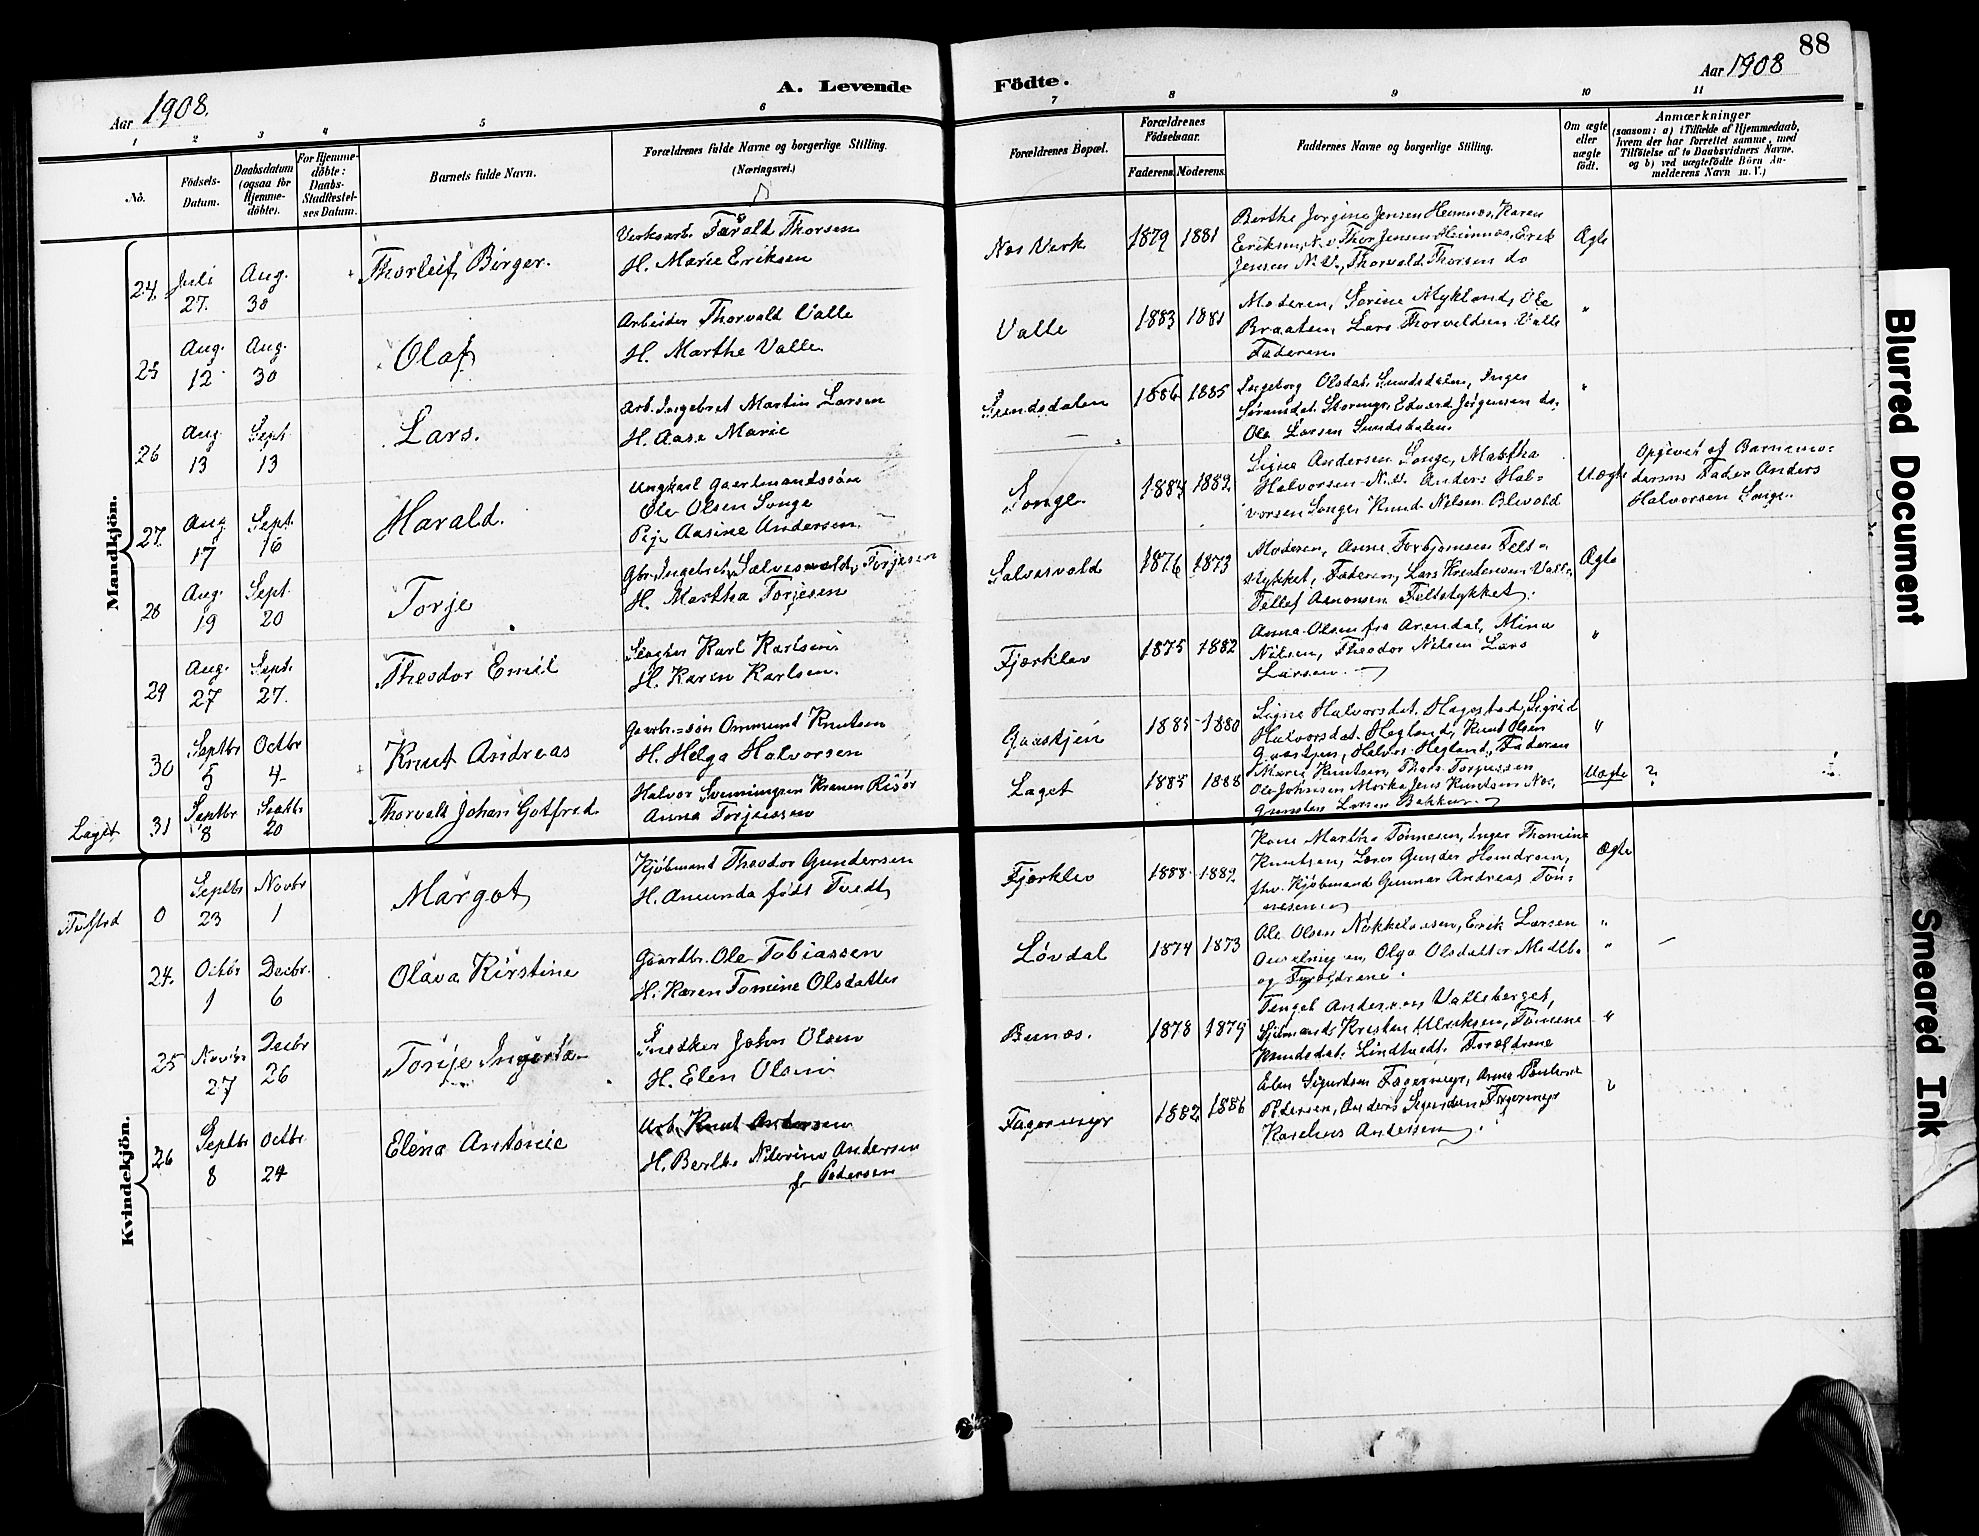 88
Aar 1908.
A. Levende Födte.
Aar 1908
1 2 3 4 5 6 7 8 9 10 11
No.
Födsels-Datum.
Daabsdatum (ogsaa for Hjemme-døbte).
For Hjemme-döbte: Daabs-Stadfæstel-ses Datum.
Barnets fulde Navn.
Forældrenes fulde Navne og borgerlige Stilling.
(Næringsvei.)
Forældrenes Bopæl.
Forældrenes Födselsaar.
Faderens. Moderens.
Faddernes Navne og borgerlige Stilling.
Om ægte eller uægte födt.
Anmærkninger
(saasom: a) i Tilfælde af Hjemmedaab,
hvem der har forrettet samme, med
Tilföielse af to Daabsvidners Navne.
og b) ved uægtefödte Börn An-
melderens Navn m. V.)
Mandkjön.
24. Juli 27. Aug. 30 Thorleif Birger.
Verksarb. Farald Thorsen
H. Marie Eriksen
Næs Verk 1879 1881
Berthe Jorgine Jensen Heimnæs, Karen
Eriksen, N.V. Thor Jensen Heimnæs, Erik
Jensen N.V., Thorvald Thorsen do
Ægte
25 Aug. 12 Aug. 30 Olaf
Arbeider Thorvald Valle
H. Marthe Valle
Valle 1883 1881
Moderen, Sorine Mykland, Ole
Braaten, Lars Thorvaldsen Valle
Faderen.
"
26 Aug. 13 Sept. 13 Lars.
Arb. Ingebret Martin Larsen
H. Aase Marie
Sundsdalen 1886 1885
Ingeborg Olsdat. Sundsdalen, Inger
Edvard Jørgensen do.
Ole Larsen Sundsdalen.
"
27. Aug 17 Sept. 16 Harald.
Ungkarl Gaardmandssøn
Ole Olsen Songe
Pige Aasine Andersen
Songe 1884 1882
Signe Andersen Songe, Martha
Halvorsen N.V. Anders Hal-
vorsen Songe, Knud Nilsen Blevold
Uægte
Opgivet af Barnemo-
derens Fader Anders
Halvorsen Songe.
28 Aug. 19 Sept. 20 Torje
Gbr. Ingebret Salvesvold, Torjesen
H. Martha Torjesen
Salvesvold 1876 1873
Moderen, Anne Torbjørnsen Felt-
stykket, Faderen, Lars Kristensen Valle
Tellef Aanonsen Feltstykket.
Ægte
29 Aug. 27 Sept. 27. Theodor Emil
Slagter Karl Karlsen
H. Karen Karlsen.
Fjærklev 1875 1882
Anna Olsen fra Arendal, Mina
Nilsen, Theodor Nilsen Lars
Larsen.
"
30 Septbr 5 Octbr 4 Knut Andreas
Gaarbr.=søn Ommund Knutsen
H. Helga Halvorsen
Gaaskjen 1885 1880
Signe Halvorsdat. Hagestad, Sigrid
Halvorsdat. Hegland, Knut Olsen
Halvor Hegland, Faderen
"
Laget 31 Septbr 8 Septbr 20 Thorvald Johan Gotfred.
Halvor Svenningsen Kranen Risør
Anna Torjussen
Laget 1885 1888
Marie Knutsen, Thor Torjussen
Ole Johnsen Jens Knutsen Næs,
Gunsten Larsen Bakken
Uægte ?
Kvindekjön.
0 Septbr 23 Novbr 1 Margot
Kjøbmand Theodor Gundersen
H. Amunda født Tvedt
Fjærklev 1888 1882
Kone Martha Tønnesen, Inger Thomine
Knutsen, Lærer Gunder
fhv. Kjøbmand Gunnar Andreas Tøn-
nesen
Ægte
24. Octbr 1 Decbr. 6 Olava Kirstine
Gaardbr. Ole Tobiassen
H. Karen Tomine Olsdatter
Løvdal 1874 1873
Ole Olsen Erik Larsen
Olga Olsdatter
og Forældrene.
"
25 Novbr 27 Decbr 26 Torije
Snedker John Olsen
H. Elen Olsen
Buaas. 1878 1879
Tengel Andersen Valleberget,
Sjømand Kristen Ulriksen, Tomine
Knudsdat. Lindtvedt. Forældrene
"
26 Septbr 8 Octbr. 24 Elena Antonie
Arb. Knut Andersen
H. Berthe Andersen
f. Pedersen
Fagermyr 1882 1886
Elen Sigurdsen Fagermyr, Anna
Pedersen, Anders Fagermyr
Karelius Andersen
Blurred Document
Smeared Ink